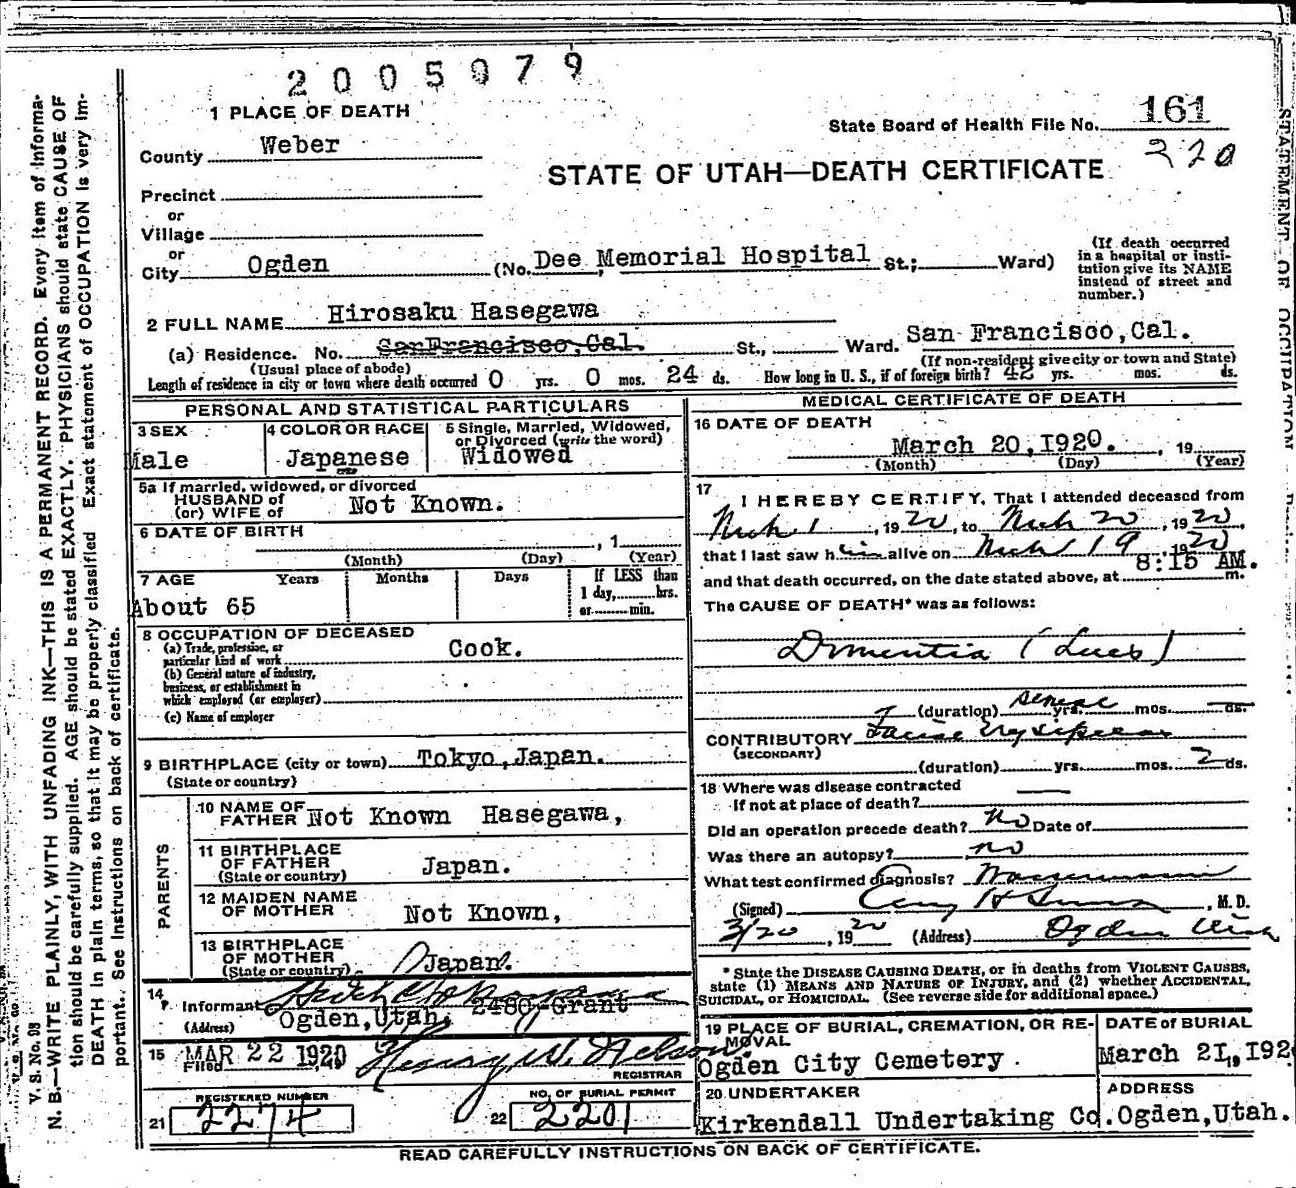 2005079
1 PLACE OF DEATH
State Board of Health File No. 161
220
County Weber
STATE OF UTAH—DEATH CERTIFICATE
Precinct
or
Village
or
City Ogden (No. Dee Memorial Hospital St.; Ward)
(If death occurred in a hospital or insti-
tution give its NAME
instead of street and
number.)
2 FULL NAME Hirosaku Hasegawa
(a) Residence. No. SanFrancisco,Cal. St., Ward. San Francisco,Cal.
(Usual place of abode) (If non-resident give city or town and State)
Length of residence in city or town where death occurred 0 yrs. 0 mos. 24 ds. How long in U. S., if of foreign birth? 42 yrs. mos. ds.
PERSONAL AND STATISTICAL PARTICULARS
3 SEX
Male
4 COLOR OR RACE
Japanese
5 Single, Married, Widowed,
or Divorced (write the word)
Widowed
5a If married, widowed, or divorced
HUSBAND of
(or) WIFE of Not Known.
6 DATE OF BIRTH
, 1
(Month) (Day) (Year)
7 AGE Years Months Days If LESS than
1 day, hrs.
or min.
About 65
8 OCCUPATION OF DECEASED
(a) Trade, profession, or
particular kind of work Cook.
(b) General nature of industry,
business, or establishment in
which employed (or employer)
(c) Name of employer
9 BIRTHPLACE (city or town) Tokyo,Japan.
(State or country)
PARENTS
10 NAME OF
FATHER Not Known Hasegawa,
11 BIRTHPLACE
OF FATHER
(State or country) Japan.
12 MAIDEN NAME
OF MOTHER Not Known,
13 BIRTHPLACE
OF MOTHER
(State or country) Japan.
14
Informant 2480 Grant
(Address) Ogden,Utah,
15 MAR 22 1920 Henry W. Nelson.
Filed REGISTRAR
REGISTERED NUMBER
21 2274
NO. OF BURIAL PERMIT
22 2201
MEDICAL CERTIFICATE OF DEATH
16 DATE OF DEATH
March 20,1920. , 19
(Month) (Day) (Year)
17
I HEREBY CERTIFY, That I attended deceased from
Mch 1 , 1920, to Mch 20 , 1920,
that I last saw him alive on Mch 19 , 1920
and that death occurred, on the date stated above, at 8:15 AM. m.
The CAUSE OF DEATH* was as follows:
Dementia (Lues)
(duration) yrs. mos. ds.
CONTRIBUTORY Facial Erysipelas
(SECONDARY)
(duration) yrs. mos. 2 ds.
18 Where was disease contracted
If not at place of death?
Did an operation precede death? No Date of
Was there an autopsy? no
What test confirmed diagnosis? Wassermann
(Signed) , M. D.
3/20 , 1920 (Address) Ogden Utah
* State the DISEASE CAUSING DEATH, or in deaths from VIOLENT CAUSES,
state (1) MEANS AND NATURE OF INJURY, and (2) whether ACCIDENTAL,
SUICIDAL, or HOMICIDAL. (See reverse side for additional space.)
19 PLACE OF BURIAL, CREMATION, OR RE-
MOVAL
Ogden City Cemetery.
DATE of BURIAL
March 21, 192
20 UNDERTAKER
Kirkendall Undertaking Co.
ADDRESS
Ogden,Utah.
READ CAREFULLY INSTRUCTIONS ON BACK OF CERTIFICATE.
V. S. No. 98
N. B.—WRITE PLAINLY, WITH UNFADING INK—THIS IS A PERMANENT RECORD. Every item of informa-
tion should be carefully supplied. AGE should be stated EXACTLY. PHYSICIANS should state CAUSE OF
DEATH in plain terms, so that it may be properly classified Exact statement of OCCUPATION is very im-
portant. See instructions on back of certificate.
STATEMENT OF OCCUPATION